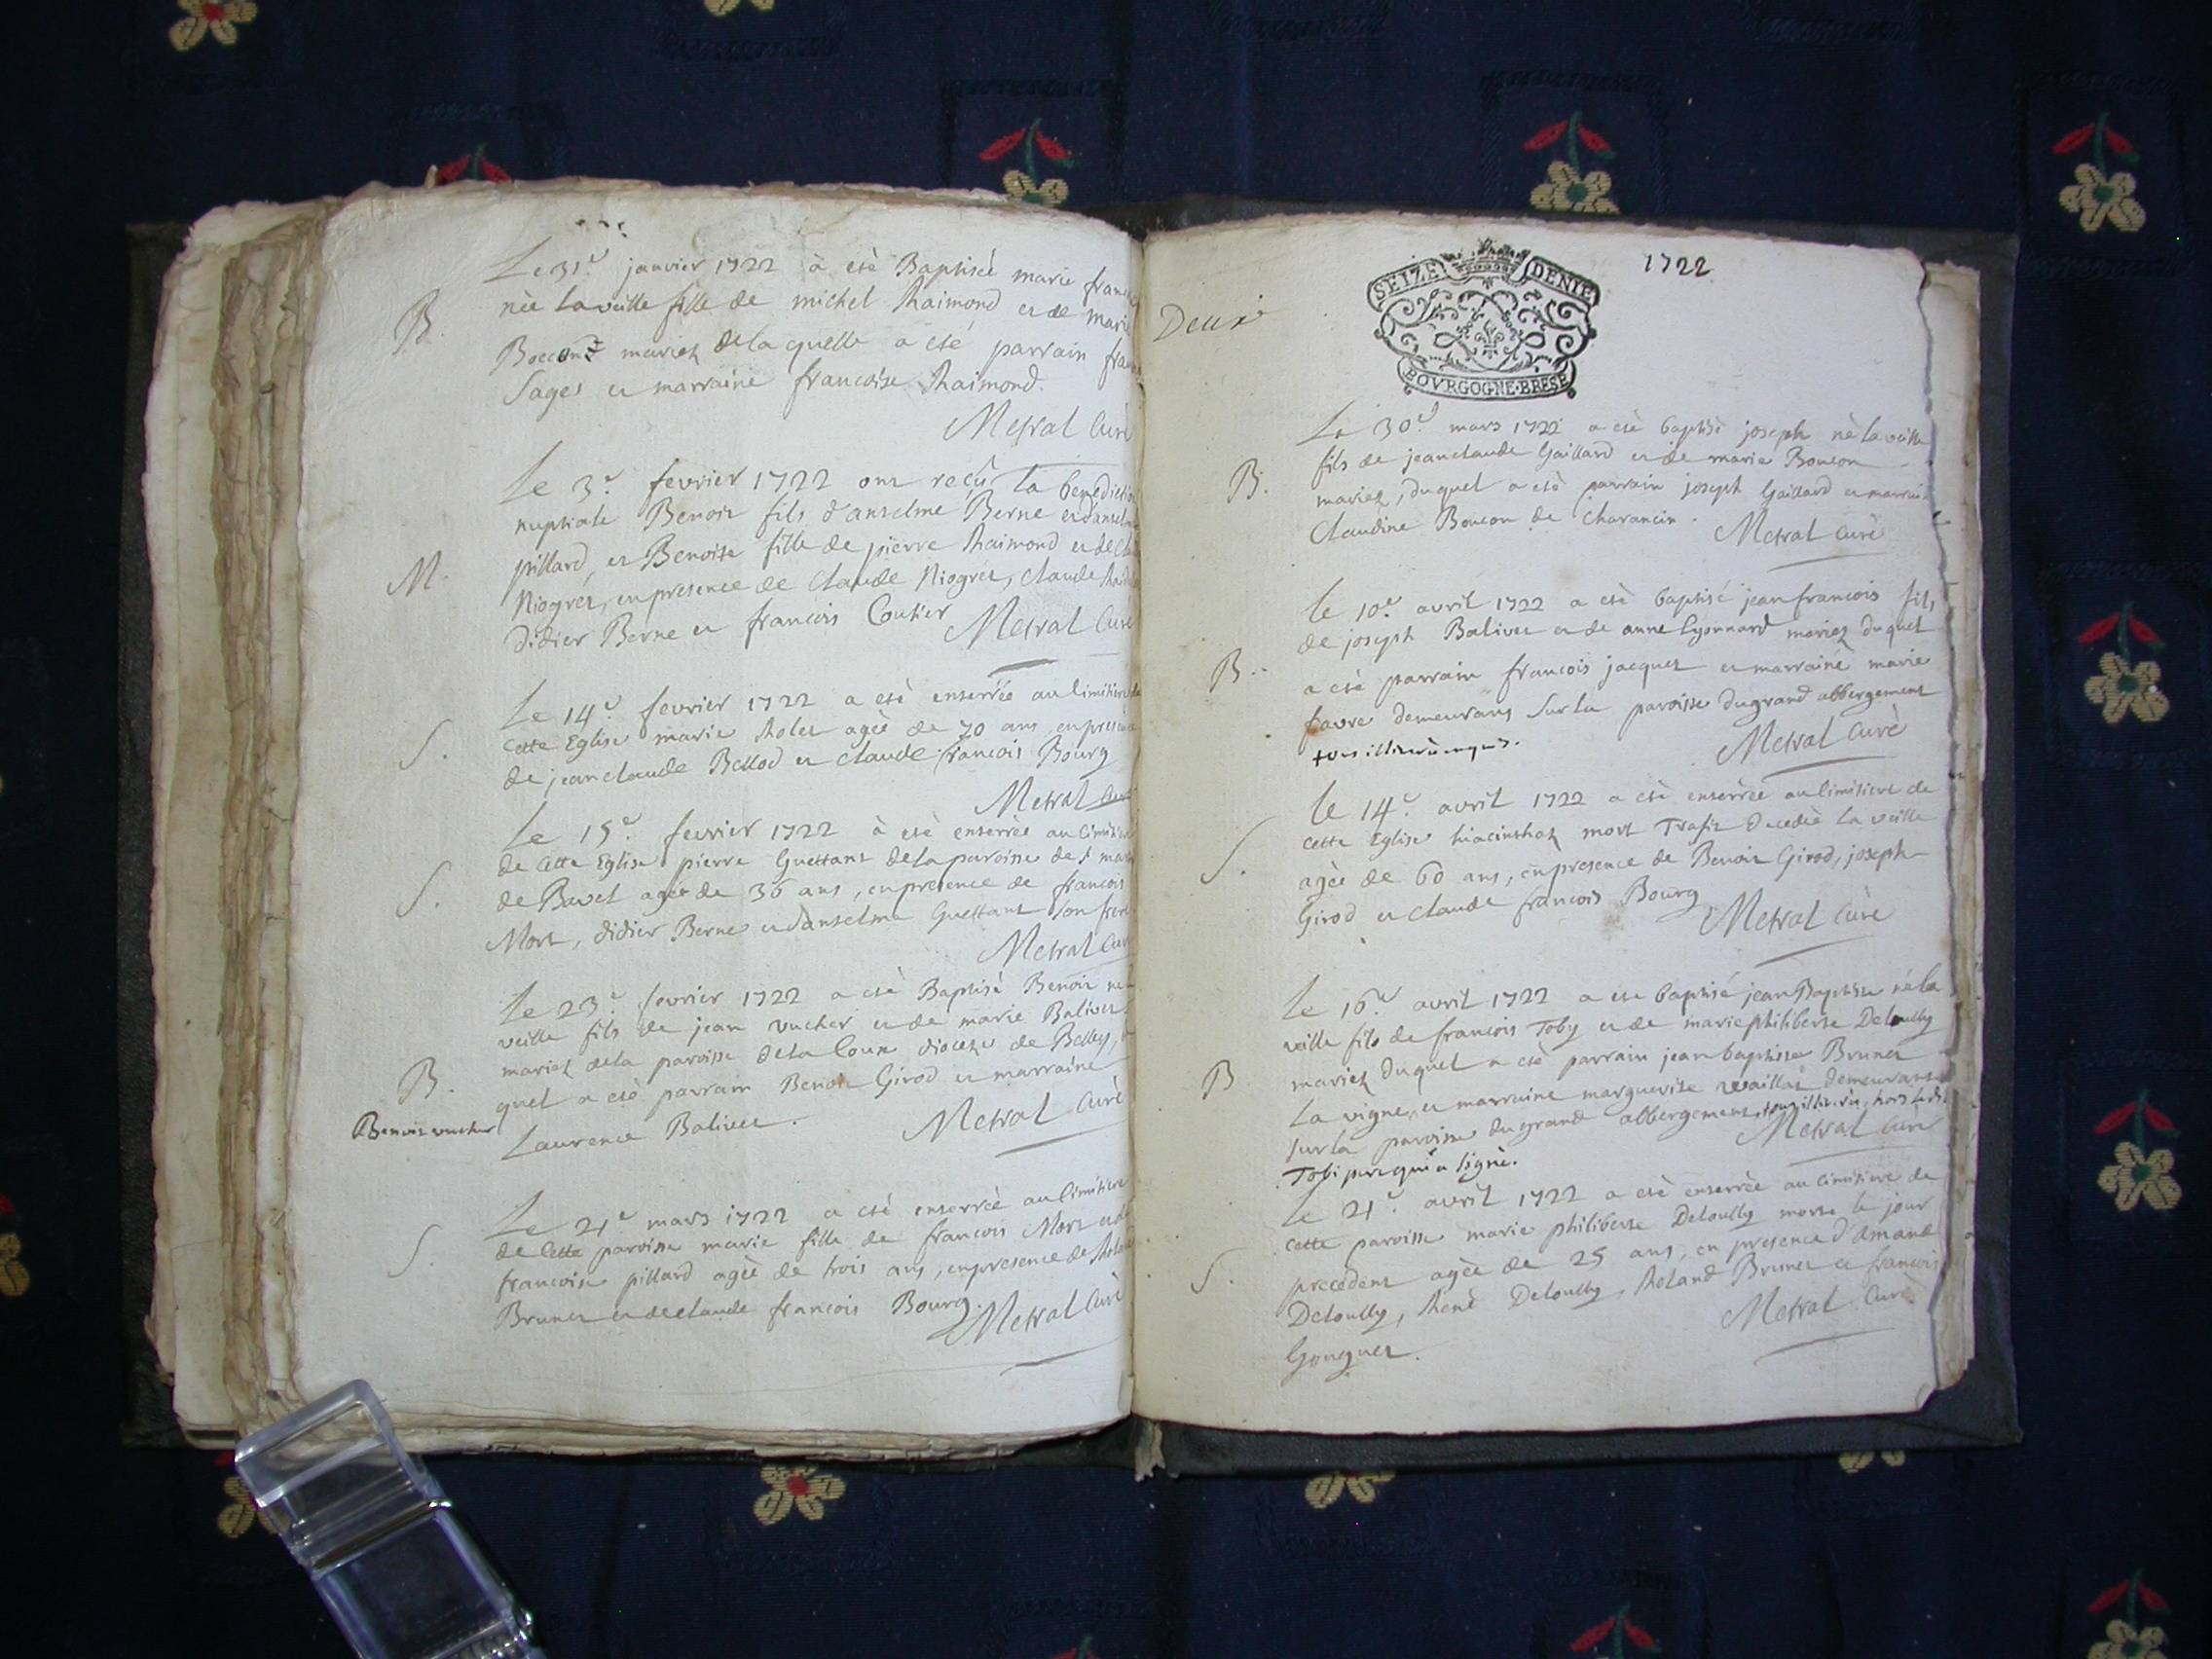 Le 31e janvier 1722 à esté Baptisée marie
née la veille fille de michel Raimond et de marie
B. mariez de la quelle a été parrain
Sages et marraine francoise Raimond.
Metral Curé
Le 3e fevrier 1722 ont recû la benediction
nuptiale Benoit fils d'anselme Berne et
M. pillard, et Benoite fille de pierre Raimond et de
Niogret, en presence de Claude Niogret, Claude
didier Berne et francois Coutier Metral Curé
Le 14e fevrier 1722 a esté enterrée au Cimitiere
cette Eglise marie Rolet agée de 70 ans, en presence
S. de jean claude Bellod et claude francois Bourg
Metral Curé
Le 15e fevrier 1722 à esté enterrée au Cimitiere
de Cette Eglise pierre Guettant de la paroisse de St
S. de Bavet agée de 36 ans, en presence de francois
Mort, didier Berne et d'anselme Guettant son frere
Metral Curé
Le 23e fevrier 1722 a esté Baptisé Benoit
veille fils de jean vucher et de marie Balivet
mariez de la paroisse de la Coux diocese de Belley,
B. quel a esté parrain Benoit Girod et marraine
Benoit vucher
Laurence Balivet. Metral Curé
Le 21e mars 1722 a esté enterrée au Cimitiere
de Cette paroisse marie fille de francois Mort et de
S. francoise pillard agée de trois ans, en presence de
Brunet et de claude francois Bourg. Metral Curé
1722
SEIZE DENIE
BOVRGOGNE·BRESE
Deux
Le 30e mars 1722 a esté baptisé joseph né la veille
fils de jean claude Gaillard et de marie Boucon
B. mariez, du quel a esté parrain joseph Gaillard et marraine
Claudine Boucon de Charancin. Metral Curé
Le 10e avril 1722 a esté baptisé jean francois fils
de joseph Balivet et de anne Lyonnard mariez du quel
B. a esté parrain francois jacquet et marraine marie
favre demeurans Sur la paroisse du grand abbergement
tous illiterés
Metral Curé
Le 14e avril 1722 a esté enterrée au Cimitiere de
cette Eglise mort decedée la veille
S. agée de 60 ans, en presence de Benoit Girod, joseph
Girod et claude francois Bourg Metral Curé
Le 16e avril 1722 a esté baptisé jean Baptiste né la
veille fils de francois Toby et de marie philiberte Deloully
B mariez du quel a esté parrain jean baptiste Brunet
La vigne, et marraine marguerite demeurans
sur la paroisse du grand abbergement, hors le dit
Tobi pere qui a signé. Metral Curé
Le 21e avril 1722 a esté enterrée au Cimitiere de
cette paroisse marie philiberte Deloully morte le jour
S. precedent agée de 25 ans, en presence d'Amand
Deloully, René Deloully, Roland Brunet et francois
Gouguet. Metral Curé